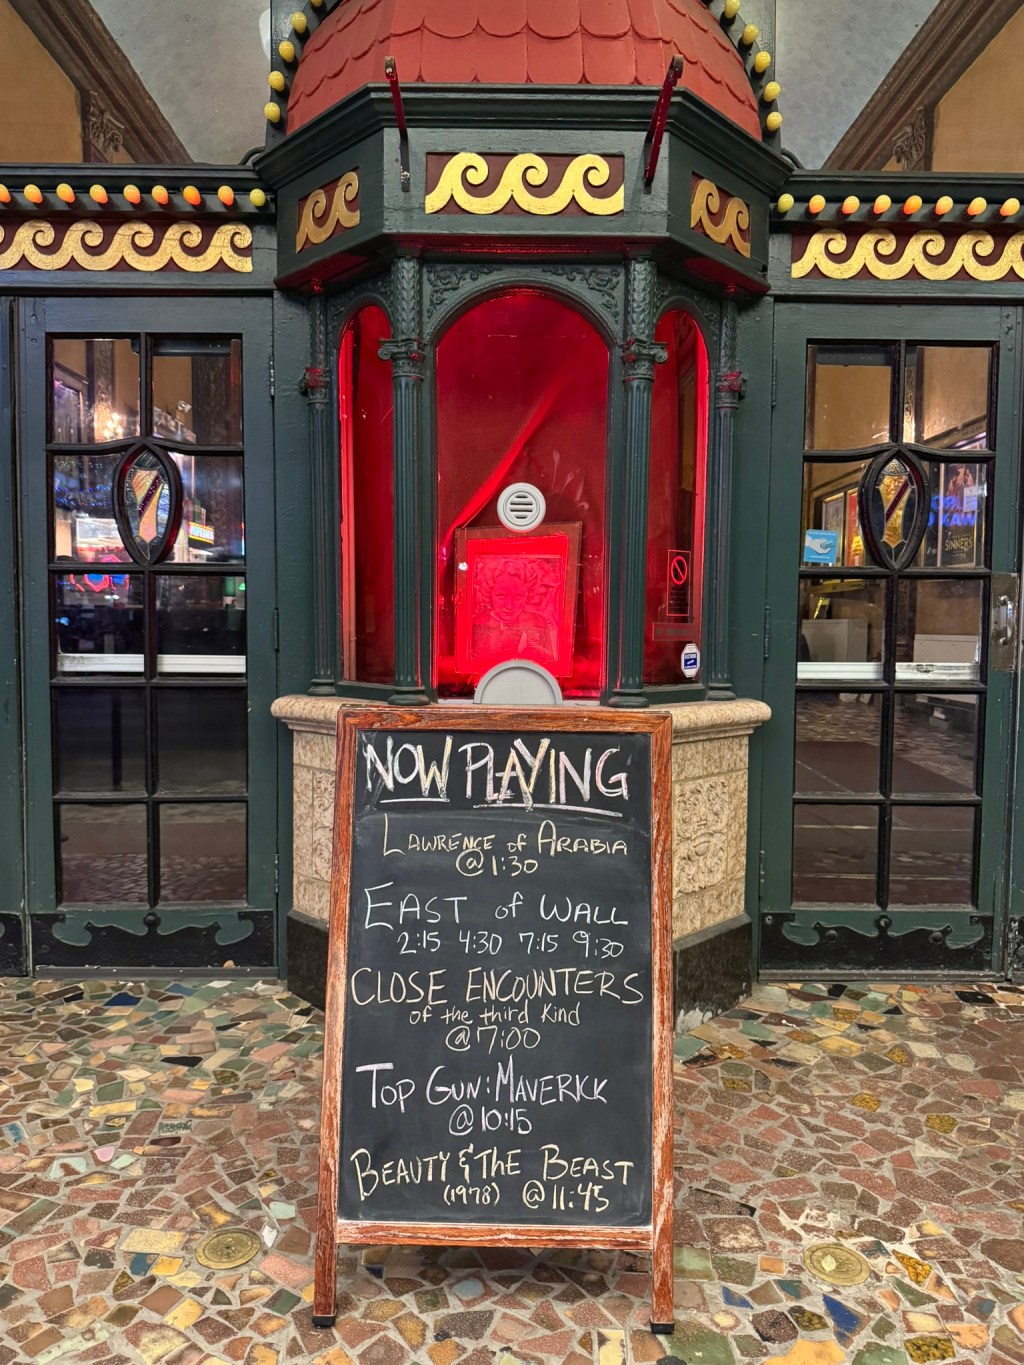 NOW PLAYING
LAWRENCE of ARABIA
@ 1:30
EAST of WALL
2:15 4:30 7:15 9:30
CLOSE ENCOUNTERS
of the third kind
@ 7:00
TOP GUN: MAVERICK
@ 10:15
BEAUTY & THE BEAST
(1978) @ 11:45
SINNERS